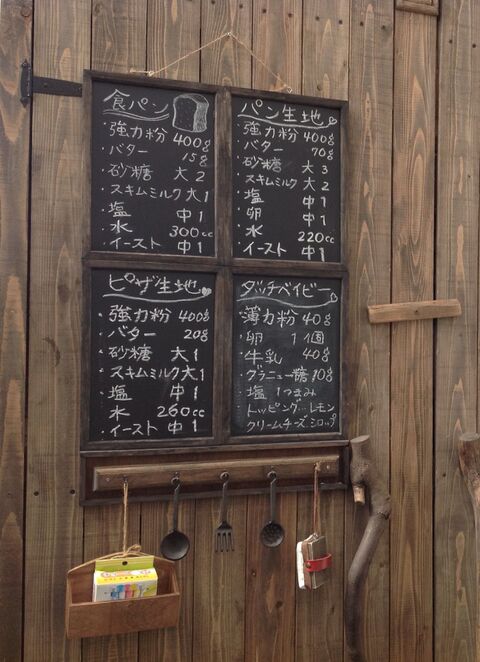 食パン
・強力粉 400g
・バター 15g
・砂糖 大2
・スキムミルク 大1
・塩 中1
・水 300cc
・イースト 中1
パン生地
・強力粉 400g
・バター 70g
・砂糖 大3
・スキムミルク 大2
・塩 中1
・卵 中1
・水 220cc
・イースト 中1
ピザ生地
・強力粉 400g
・バター 20g
・砂糖 大1
・スキムミルク 大1
・塩 中1
・水 260cc
・イースト 中1
ダッチベイビー
・薄力粉 40g
・卵 1個
・牛乳 40g
・グラニュー糖 10g
・塩 1つまみ
・トッピング…レモン
クリームチーズ.シロップ